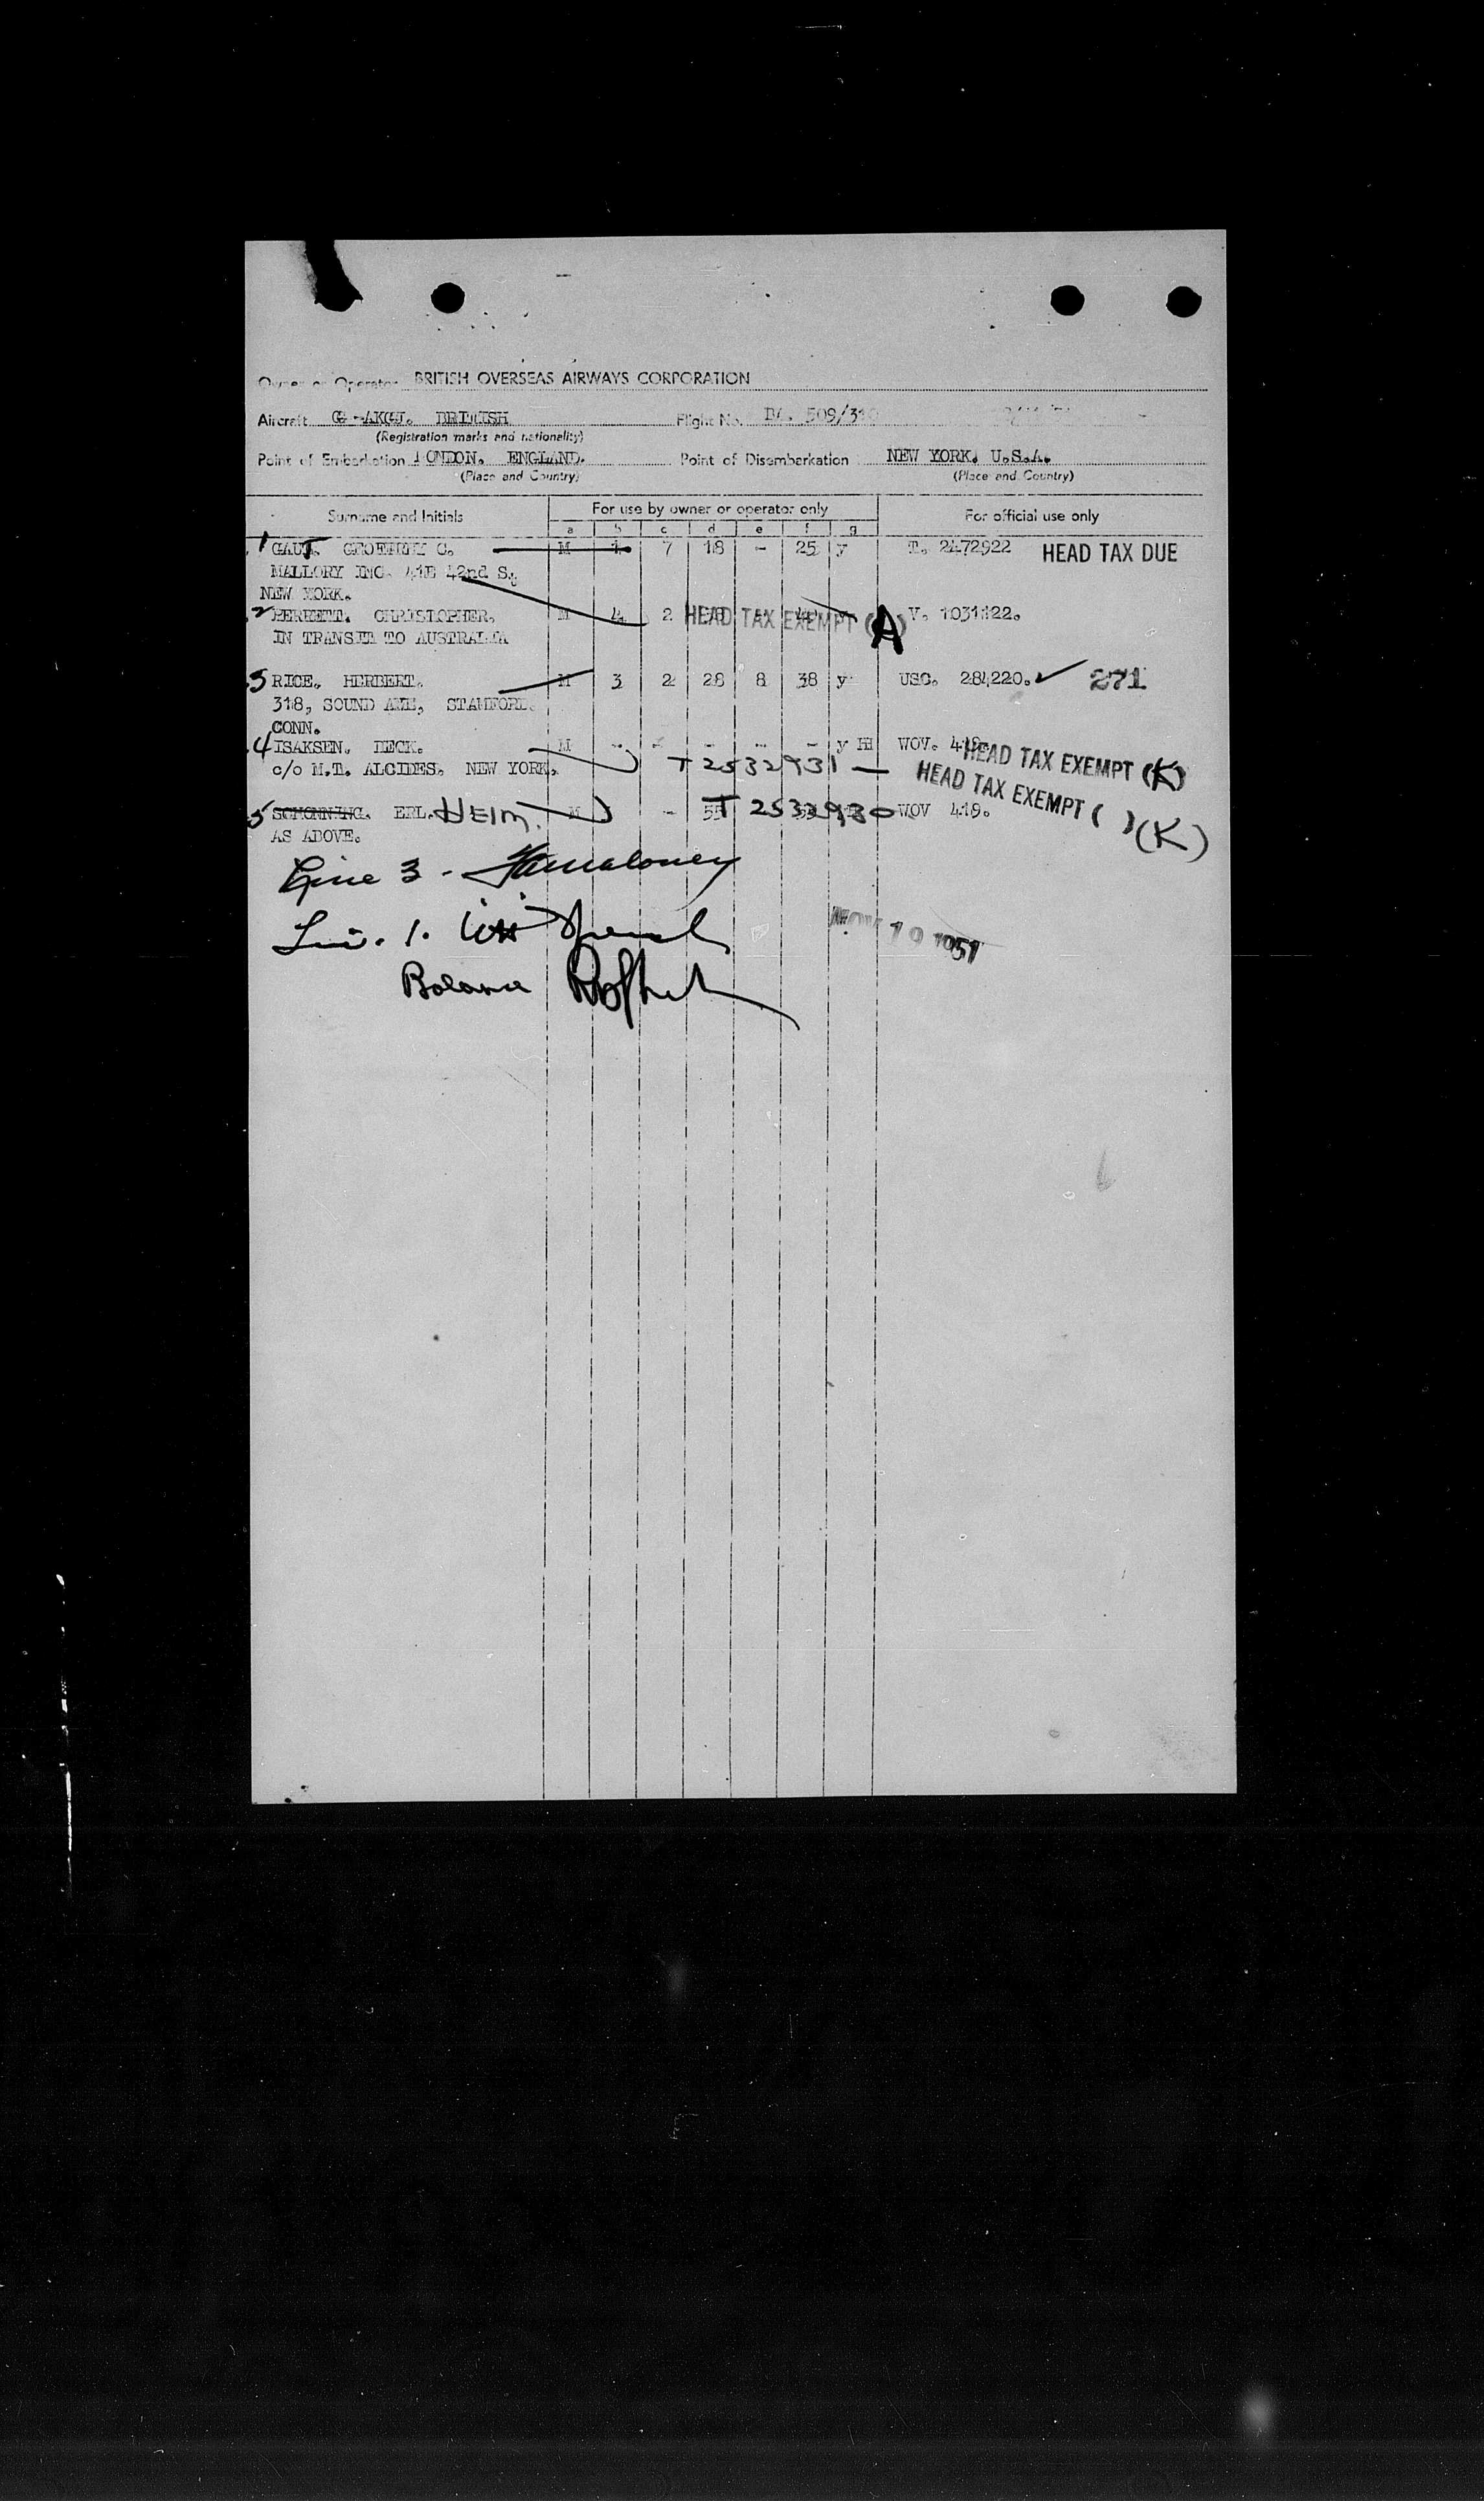 Owner or Operator BRITISH OVERSEAS AIRWAYS CORPORATION
Aircraft BRITISH Flight No. BA. 509/310
(Registration marks and nationality)
Point of Embarkation LONDON, ENGLAND. Point of Disembarkation NEW YORK. U.S.A.
(Place and Country) (Place and Country)
Surname and Initials For use by owner or operator only For official use only
a b c d e f g
1 GAUT. GEOFFREY C. M 1 7 18 - 25 y T. 2472922 HEAD TAX DUE
MALLORY INC. 41E 42nd S.
NEW YORK.
2 PERRETT. CHRISTOPHER. M 4 2 HEAD TAX EXEMPT (A) V. 1031122.
IN TRANSIT TO AUSTRALIA
3 RICE. HERBERT. M 3 2 28 8 38 y USC. 284220. 271
318, SOUND AVE, STAMFORD.
CONN.
4 ISAKSEN. M - - - - - y WOV. 418. HEAD TAX EXEMPT (K)
c/o M.T. ALCIDES. NEW YORK. T 2532931 — HEAD TAX EXEMPT ( ) (K)
5 SCHONNING. ERL. HEIM. M - T 2532930 WOV 418.
AS ABOVE.
Line 3 -
1.
Balance
NOV 19 1951